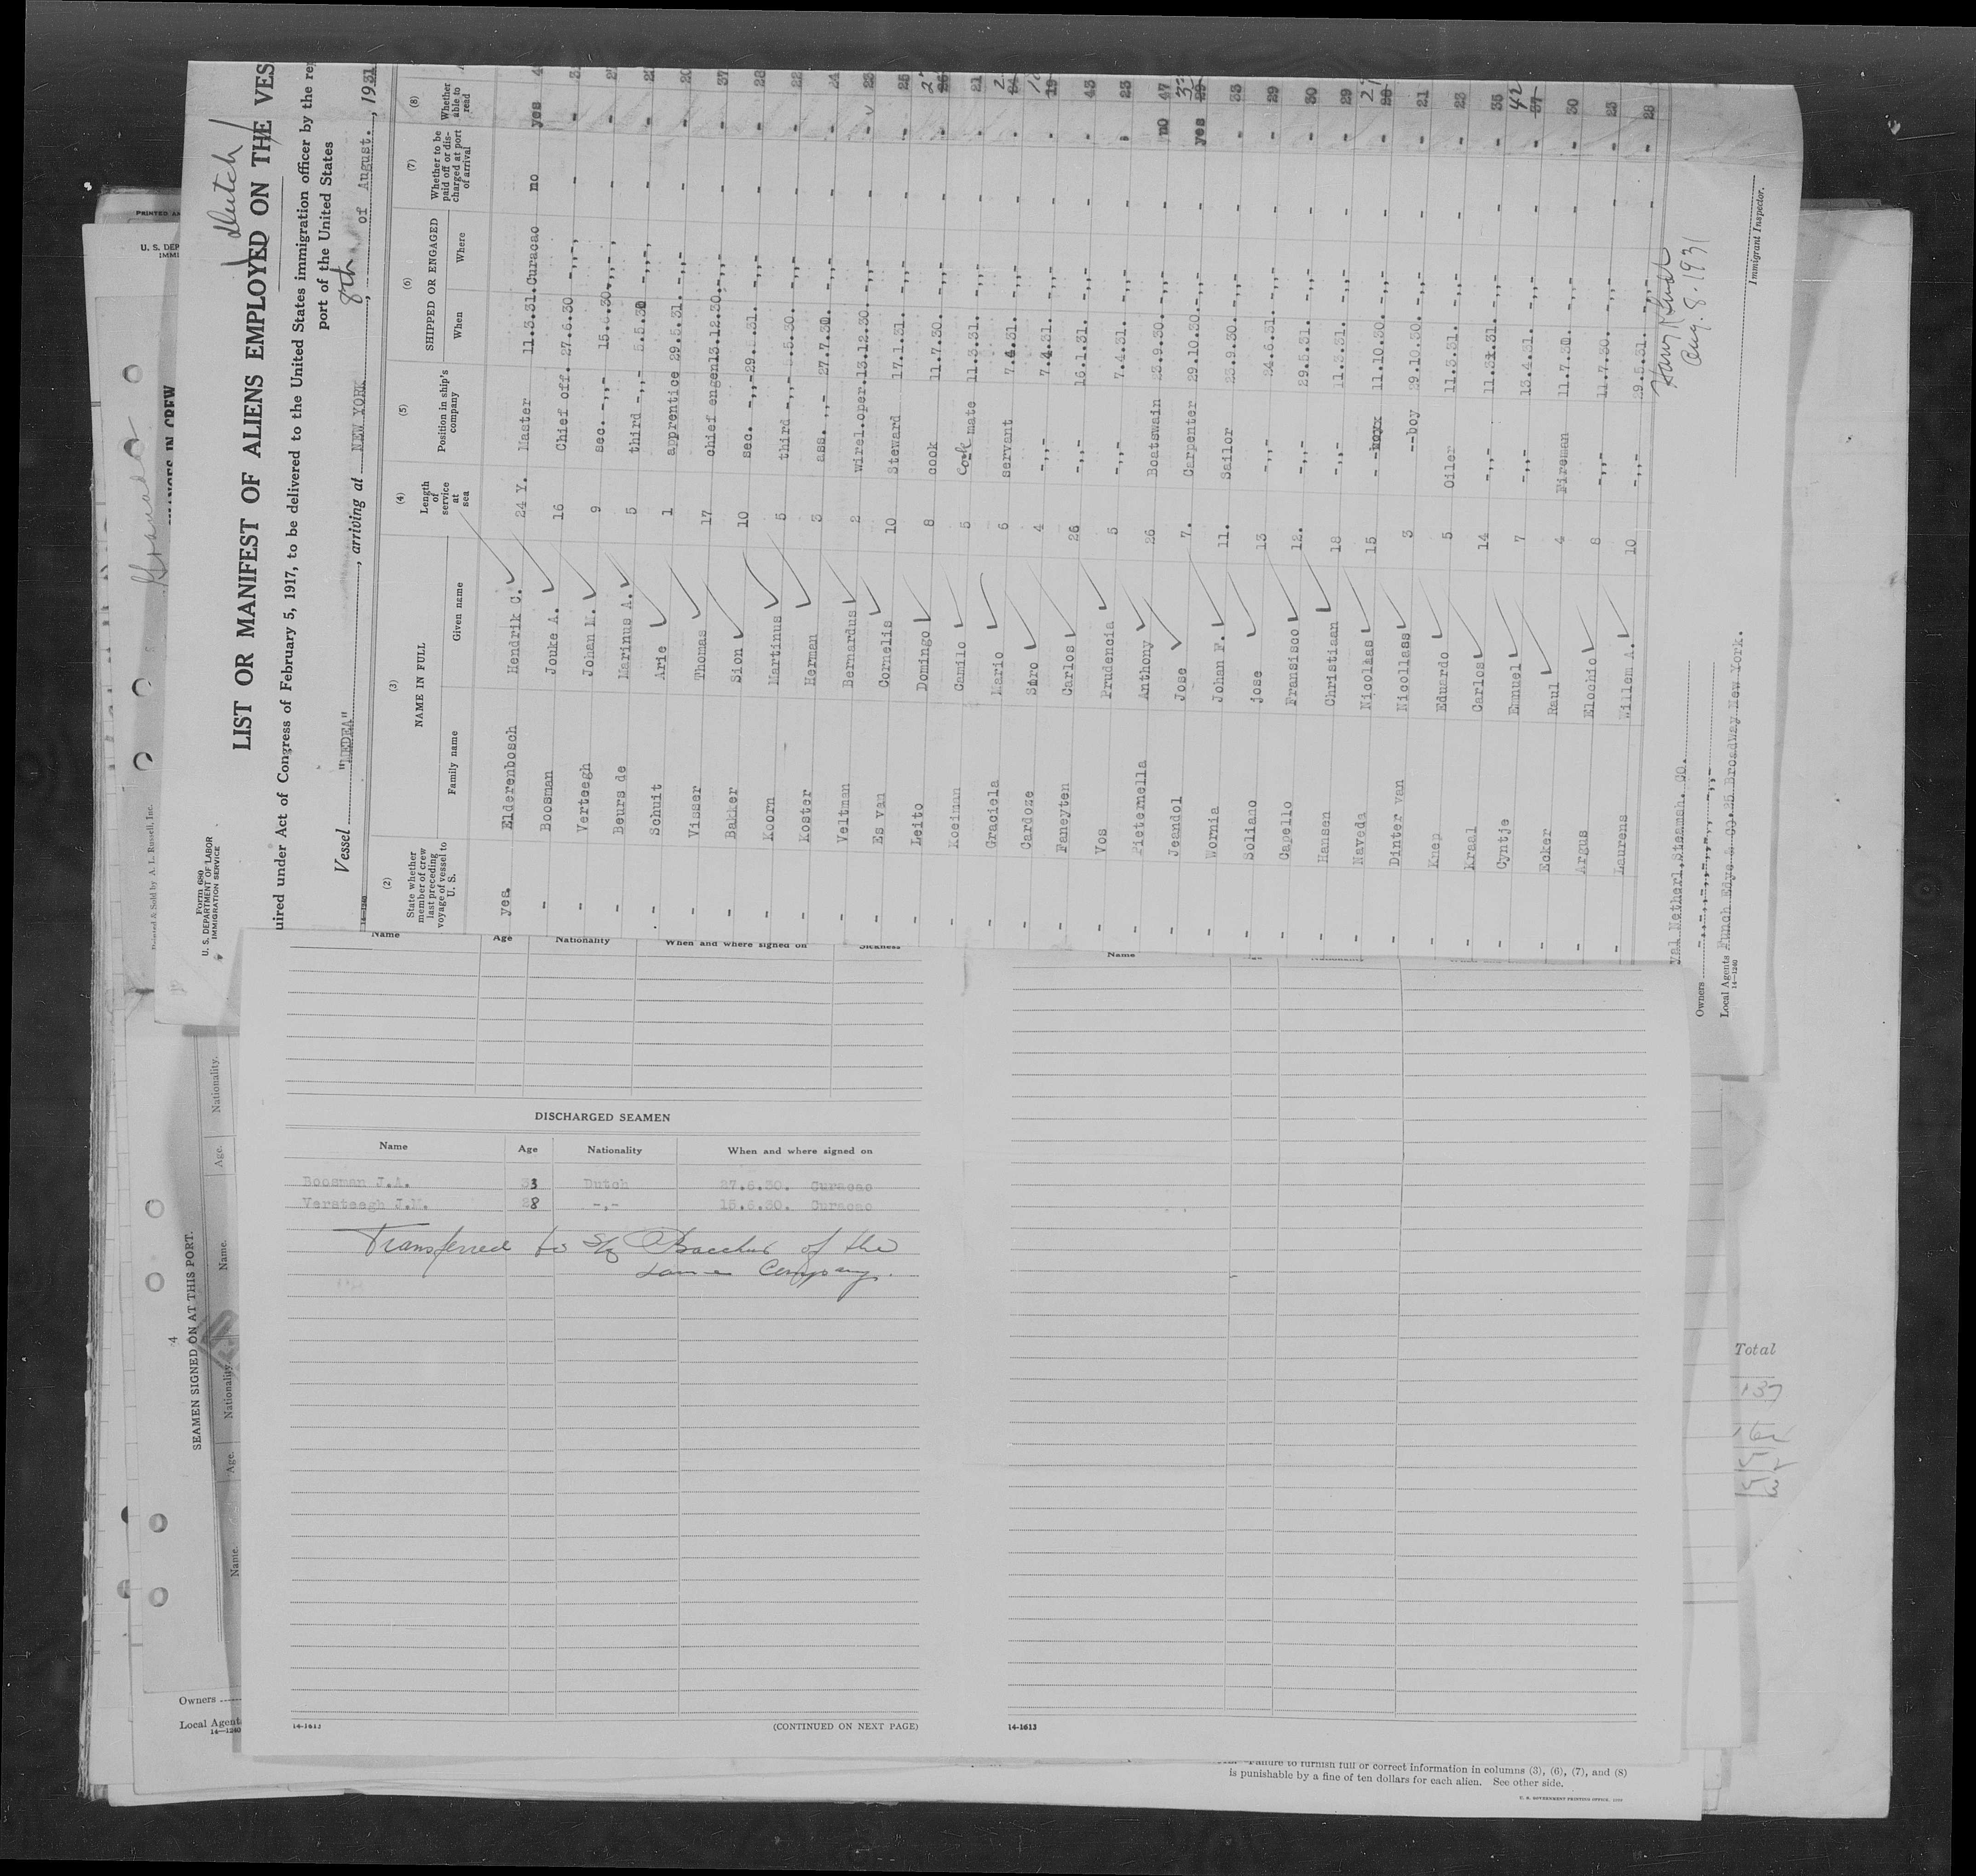 Form 680
U. S. DEPARTMENT OF LABOR
IMMIGRATION SERVICE
(Dutch)
LIST OR MANIFEST OF ALIENS EMPLOYED ON THE VES
uired under Act of Congress of February 5, 1917, to be delivered to the United States immigration officer by the re
port of the United States
Vessel "MEDEA", arriving at NEW YORK, 8th of August., 1931
14-1240
(2) (3) (4) (5) (6) (7) (8)
State whether member of crew last preceding voyage of vessel to U. S. NAME IN FULL Family name Given name Length of service at sea Position in ship's company SHIPPED OR ENGAGED When Where Whether to be paid off or discharged at port of arrival Whether able to read
yes Elderenbosch Hendrik C. 24 Y. Master 11.3.31. Curacao no yes
- Boosman Jouke A. 16 Chief off. 27.6.30 -,,-, - -
- Verteegh Johan M. 9 sec. -,,- 15.6.30. -,,-, - -
- Beurs de Marinus A. 5 third -,,- 5.5.30 -,,-, - -
- Schuit Arie 1 apprentice 29.5.31. -,,- - - 20
- Visser Thomas 17 chief engen 13.12.30. -,,- - - 37
- Bakker Sion 10 sec. -,,- 29. .31. -,,- - - 28
- Koorn Martinus 5 third -,,- 5.5.30. -,,- - - 22
- Koster Herman 3 ass. ,,- 27.7.30. -,,- - - 24
- Veltman Bernardus 2 wirel.oper. 13.12.30. -,,- - - 23
- Es van Cornelis 10 Steward 17.1.31. -,,- - - 25
- Leito Domingo 8 cook 11.7.30. -,,- - - 26
- Koeiman Camilo 5 Cook mate 11.3.31. -,,- - - 21
- Graciela Mario 6 servant 7.4.31. -,,- - -
- Cardoze Siro 4 -,,- 7.4.31. -,,- - - 19
- Faneyten Carlos 26 -,,- 16.1.31. -,,- - - 43
- Vos Prudencia 5 -,,- 7.4.31. -,,- - - 23
- Pieternella Anthony 26 Boatswain 23.9.30. -,,- - no 47
- Jeandol Jose 7. Carpenter 29.10.30. -,,- - yes 29
- Wornia Johan F. 11. Sailor 23.9.30. -,,- - - 33
- Soliano jose 13 -,,- 24.6.31. -,,- - - 29
- Capello Fransisco 12. -,,- 29.5.31. -,,- - - 30
- Hansen Christiaan 18 -,,- 11.3.31. -,,- - - 29
- Naveda Nicolaas 15 - -boyx 11.10.30. -,,- - -
- Dinter van Nicollass 3 --boy 29.10.30. -,,- - - 21
- Knep Eduardo 5 Oiler 11.3.31. -,,- - - 23
- Kraal Carlos 14 -,,- 11.3.31. -,,- - - 36
- Cyntje Emnuel 7 -,,- 13.4.31. -,,- - - 37 42
- Ecker Raul 4 Fireman 11.7.30. -,,- - - 30
- Argus Elochio 8 -,,- 11.7.30. -,,- - - 23
- Laurens Willem A. 10 -,,- 29.5.31. -,,- - - 28
Aug. 8. 1931
Immigrant Inspector.
yal Netherl. Steamsh. CO.
Owners -,,-,,-,,-,,-,,-
Local Agents Funch Edye & CO. 25 Broadway New York.
14-1240
Name Age Nationality When and where signed on Sickness
DISCHARGED SEAMEN
Name Age Nationality When and where signed on
Boosman J.A. 33 Dutch 27.6.30. Curacao
Versteegh J.M. 28 -,- 15.6.30. Curacao
Transferred to S/S Bacchus of the
same Company.
14-1613
(CONTINUED ON NEXT PAGE)
Name
14-1613
PRINTED AN
U. S. DEP
IMMI
Printed & Sold by A. L. Russell, Inc.
CHANGES IN CREW
SEAMEN SIGNED ON AT THIS PORT.
Name. Age. Nationality. Name. Age. Nationality.
Owners
Local Agent
14-1240
Total
137
Failure to furnish full or correct information in columns (3), (6), (7), and (8)
is punishable by a fine of ten dollars for each alien. See other side.
U. S. GOVERNMENT PRINTING OFFICE